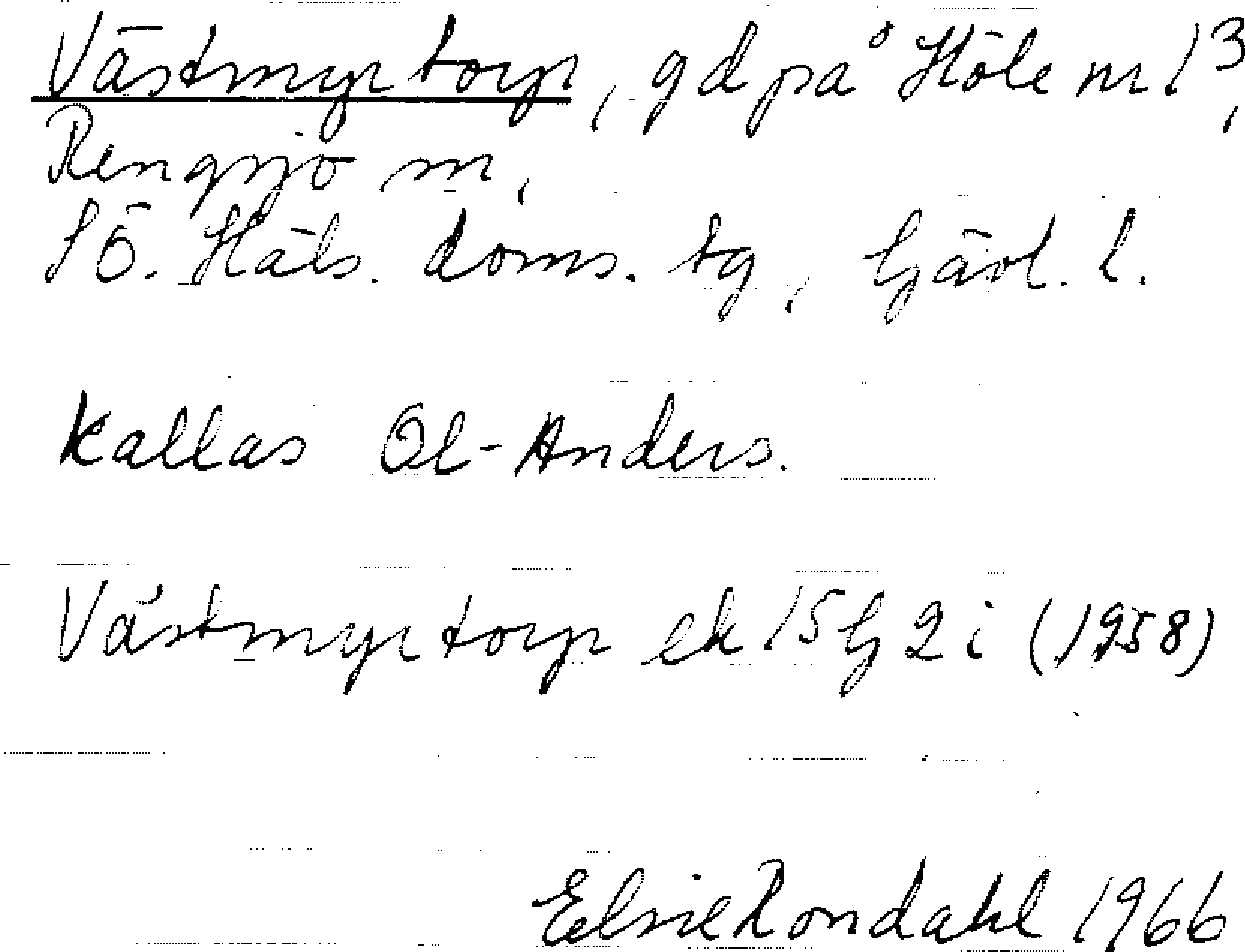 Västmyrtorp, gd på Höle nr 1³,
Rengsjö sn,
SÖ. Häls. doms. tg, Gävl. l.
kallas Ol-Anders.
Västmyrtorp ek 15G 2i (1958)
Elsie Rondahl 1966